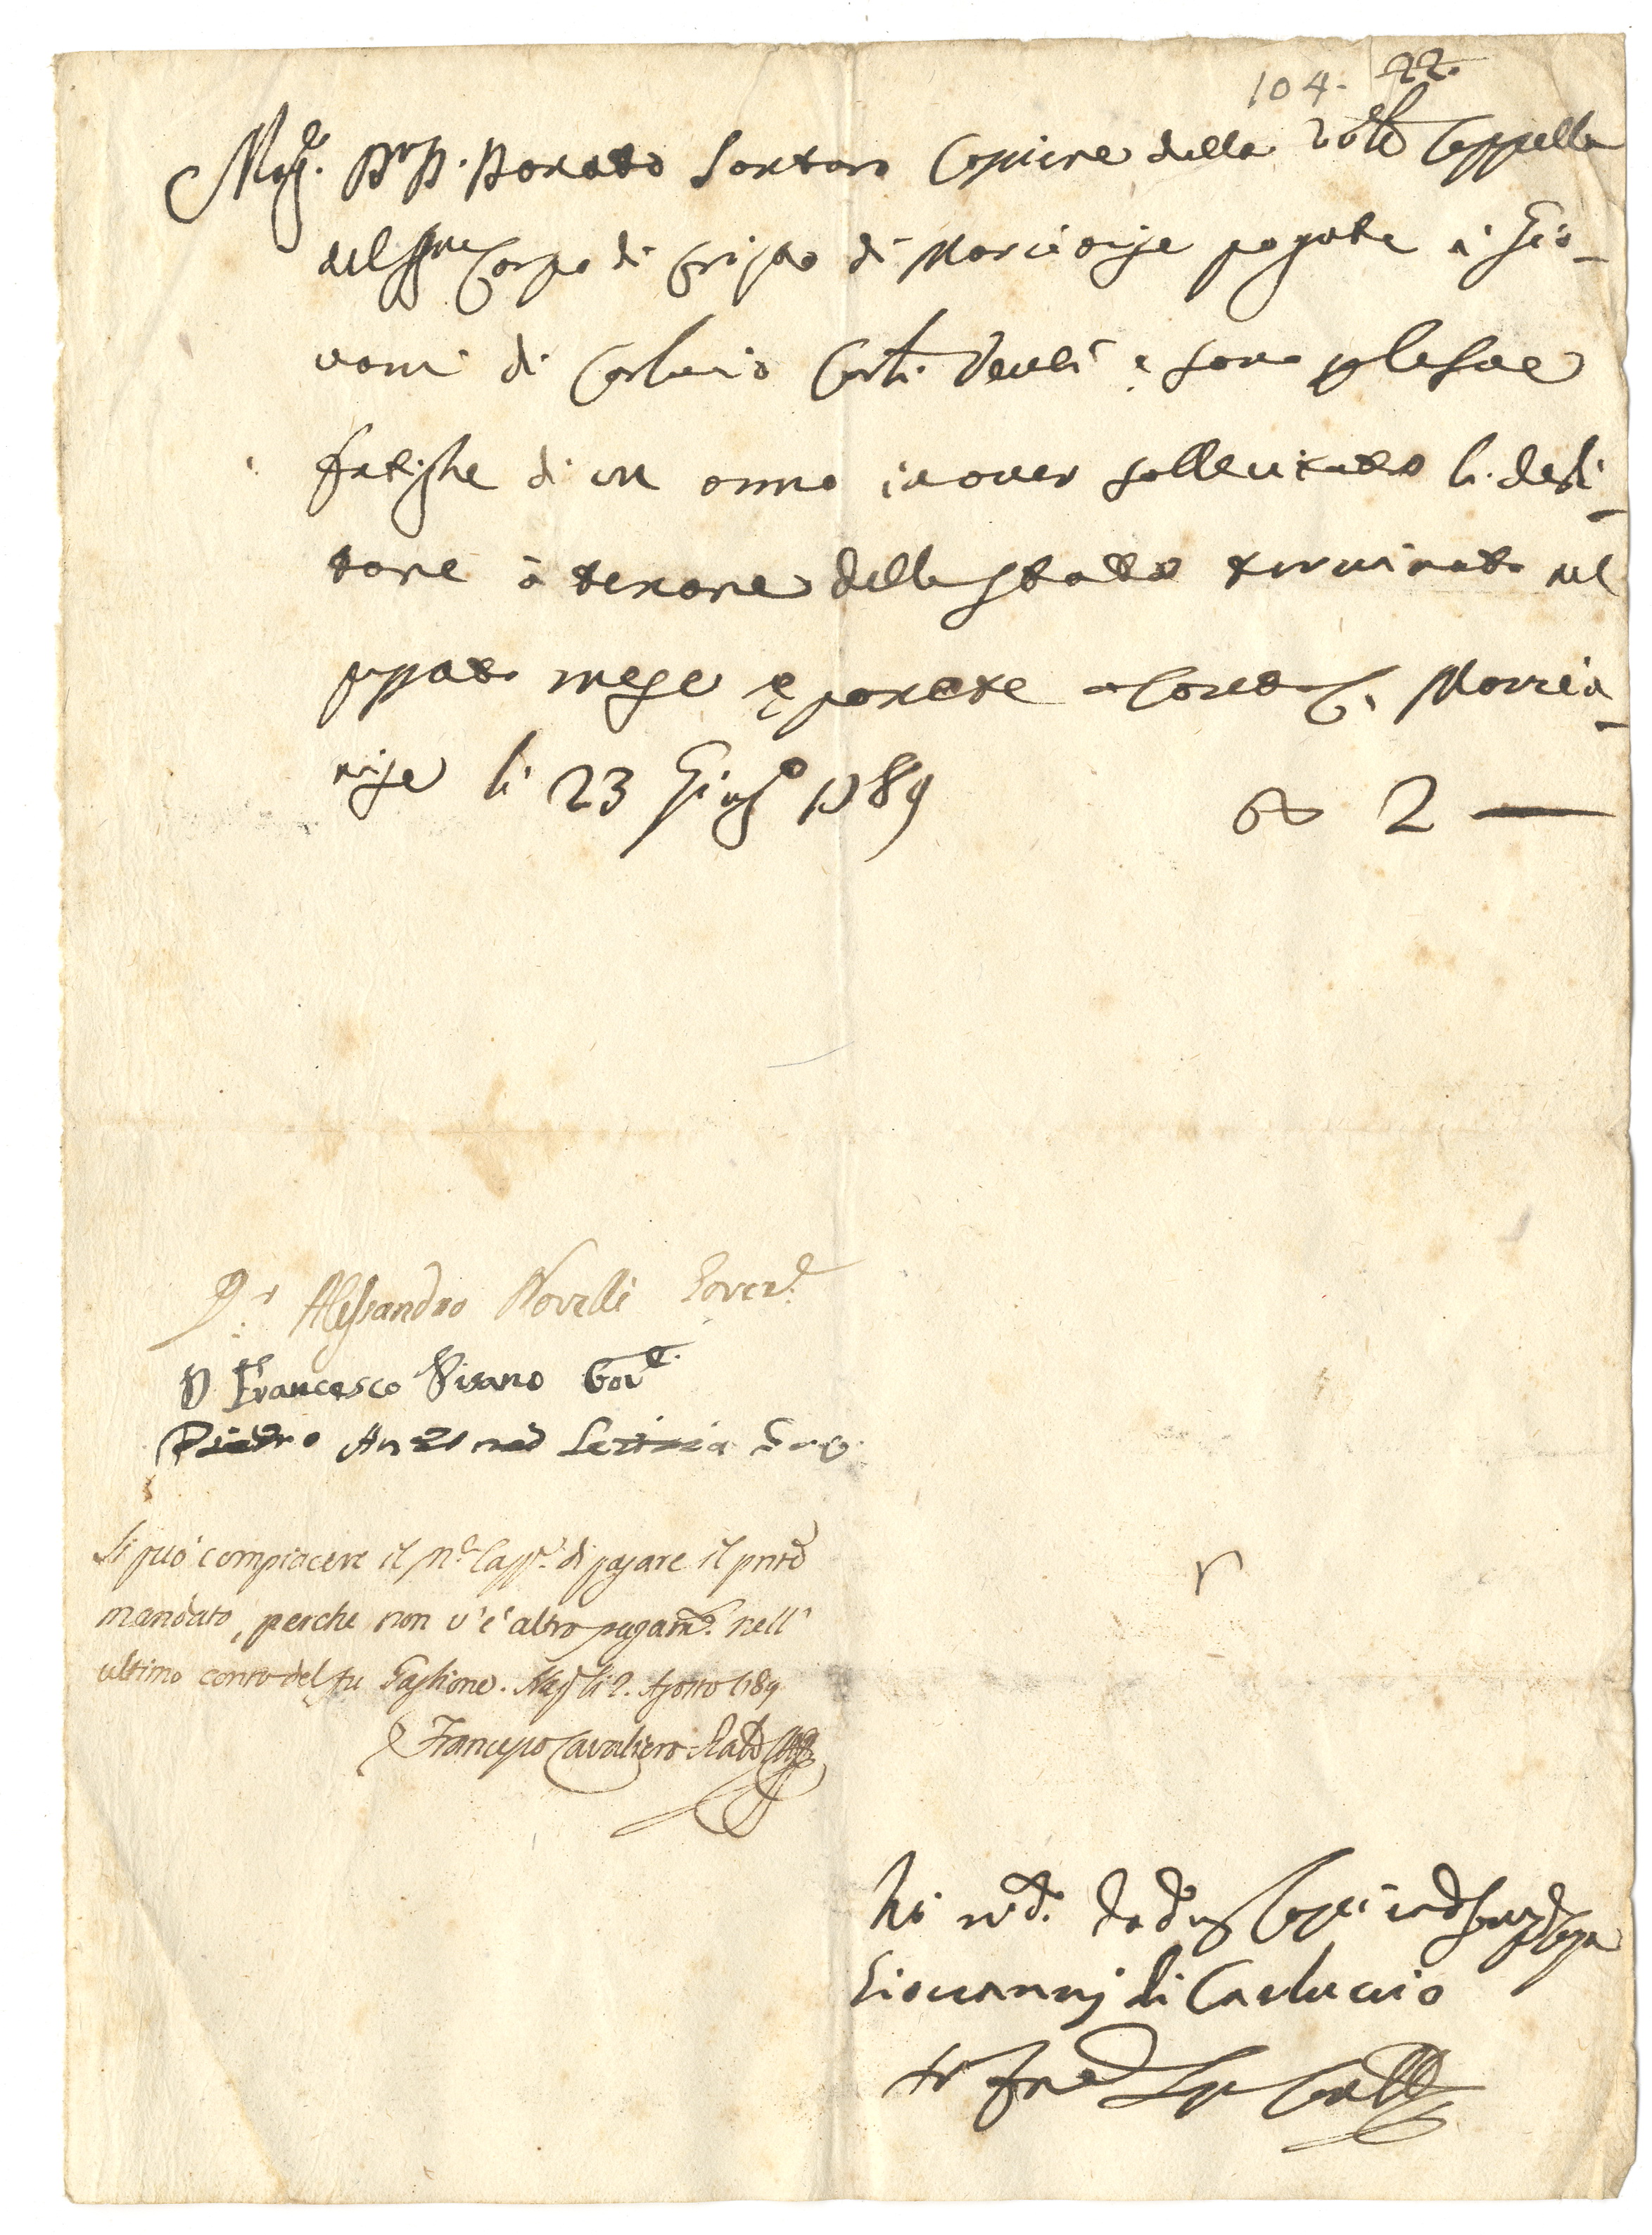 104. 22.
Mag.co D.r D. Donato Santoro Cassiere della Ven.le Cappella
del SS.mo Corpo di Cristo di Marcianise pagate a Gio-
vanni di Carluccio docati due e sono per le sue
fatighe di un anno in aver sollecitato li debi-
tori a tenore dello stato terminato nel
passato mese e ponete a conto. Marcia-
nise li 23 Giug.o 1789 2 —
D.r Alessandro Novelli Gover.e
D Francesco Pisano Gov.e
Pietro Antonio Letizia Gov.
Si può compiacere il M.co Cass.e di pagare il pnte
mandato, perche non v'è altro pagam.to nell'
ultimo conto del fu Taglione. Nap. li 2. Agosto 1789
Francesco Cavaliero
Giovannj di Carluccio